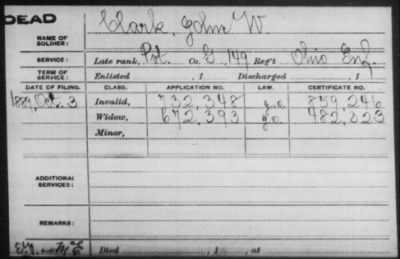 DEAD
NAME OF SOLDIER: Clark, John W.
SERVICE: Late rank, Pvt. Co. G, 149 Reg't Ohio Inf.
TERM OF SERVICE: Enlisted , 1 Discharged , 1
DATE OF FILING. CLASS. APPLICATION NO. LAW. CERTIFICATE NO.
1889, Oct. 3 Invalid, 732,348 859,246
Widow, 672,393 482,323
Minor,
ADDITIONAL SERVICES:
REMARKS:
Died , 1 , at